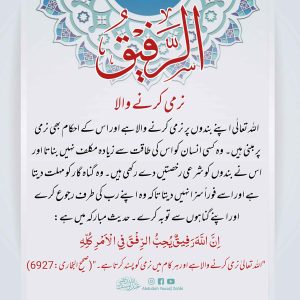 الرَّفِيقُ
نرمی کرنے والا
اللہ تعالیٰ اپنے بندوں پر نرمی کرنے والا ہے اور اس کے احکام بھی نرمی
پر مبنی ہیں۔ وہ کسی انسان کو اس کی طاقت سے زیادہ مکلف نہیں بناتا اور
اس نے بندوں کو شرعی رخصتیں دے رکھی ہیں۔ وہ گناہ گار کو مہلت دیتا
ہے اور اسے فوراً سزا نہیں دیتا تاکہ وہ اپنے رب کی طرف رجوع کرے
اور اپنے گناہوں سے توبہ کرے۔ حدیث مبارکہ میں ہے:
إِنَّ اللهَ رَفِيقٌ يُحِبُّ الرِّفْقَ فِي الْأَمْرِ كُلِّهِ
"اللہ تعالیٰ نرمی کرنے والا ہے اور ہر کام میں نرمی کو پسند کرتا ہے۔" (صحیح البخاری: 6927)